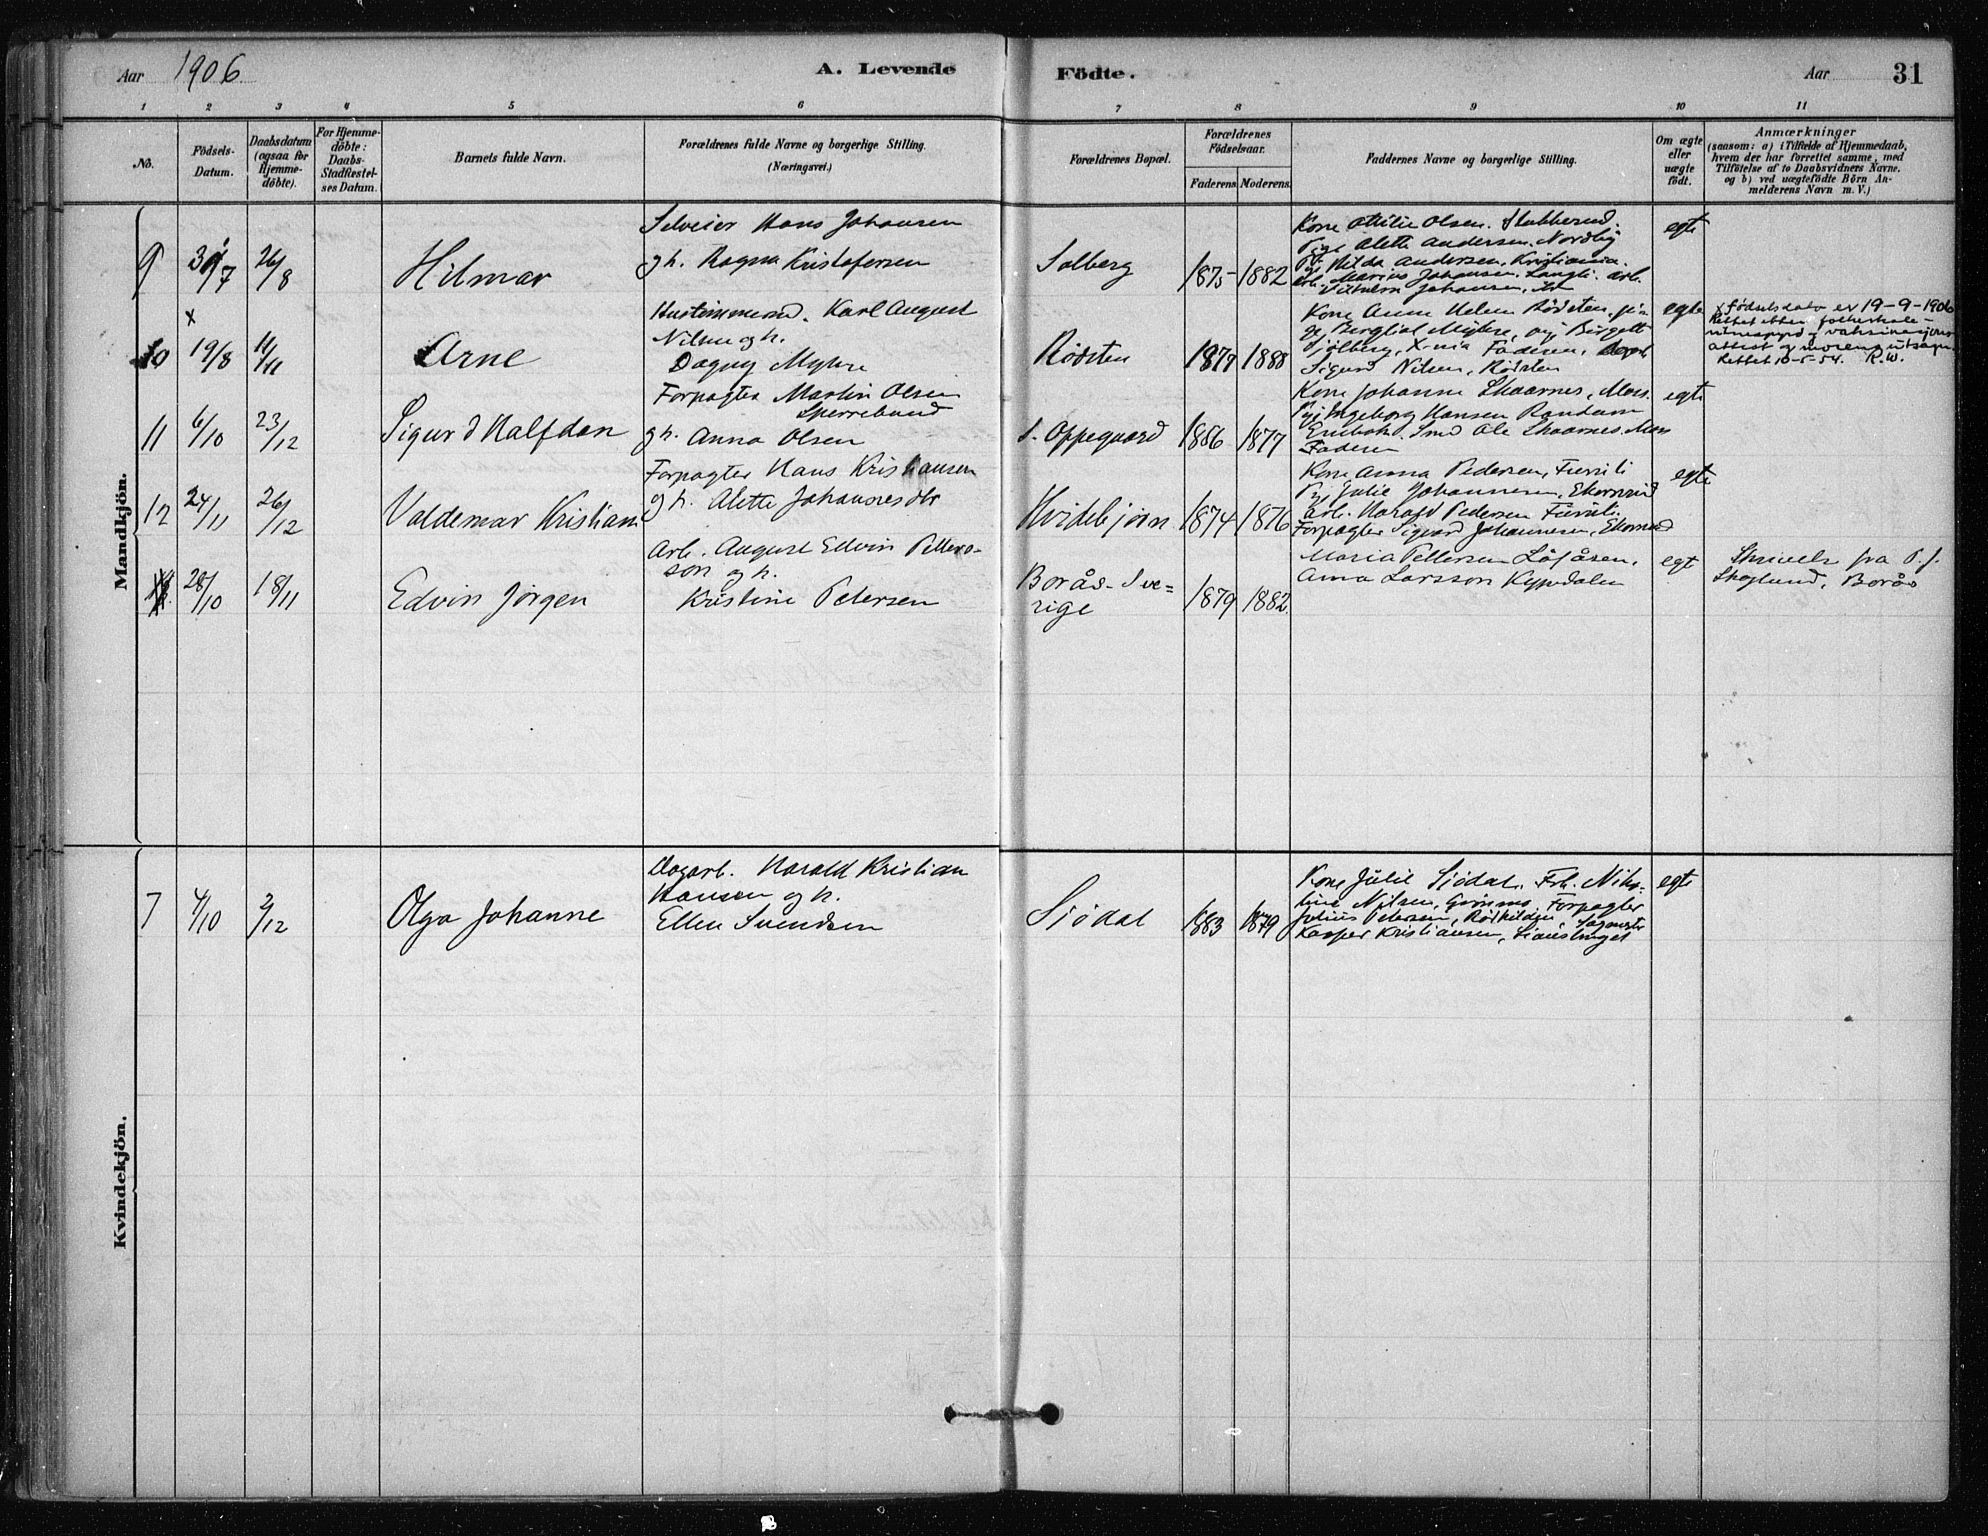 Aar 1906
A. Levende Födte.
Aar 31
1 2 3 4 5 6 7 8 9 10 11
No.
Födsels-Datum.
Daabsdatum (ogsaa for Hjemme-döbte).
For Hjemme-döbte: Daabs-Stadfæstel-ses Datum.
Barnets fulde Navn.
Forældrenes fulde Navne og borgerlige Stilling. (Næringsvei.)
Forældrenes Bopæl.
Forældrenes Födselsaar.
Faderens. Moderens.
Faddernes Navne og borgerlige Stilling.
Om ægte eller uægte födt.
Anmærkninger
(saasom: a) i Tilfælde af Hjemmedaab, hvem der har forrettet samme, med Tilföielse af to Daabsvidners Navne. og b) ved uægtefödte Börn An-melderens Navn m. V.)
Mandkjön.
9 30/7 26/8 Hilmar
Selveier Hans Johansen
g h. Ragna Kristofersen
Solberg 1875 1882
Kone Otilie Olsen. Stubberud.
Pige Alette Andersen. Nordby
Pg. Hilda Andersen, Kristiania.
arb. Marius Johansen. Langli. arb.
Vilhelm Johansen,
egte
x
10 19/8 11/11 Arne
Hustømmermd. Karl August
Nilsen og h.
Dagny Myhre
Rødsten 1877 1888
Kone Anne Helene Rødsten, pi-
ge Bergliot Myhre, pig Birgotte
Sjølberg, X-nia Faderen,
Sigurd Nilsen, Rødsten
egte
x Fødselsdato er 19-9-1906
Rettet etter folkeskole-
vitnesprd og vaksinasjons-
attest og morens utsagn.
Rettet 10-5-54. R.W.
11 6/10 23/12 Sigurd Halfdan
Forpagter Martin Olsen
Sperrebund
g h. Anna Olsen
S. Oppegaard 1886 1877
Kone Johanne Skaarnes, Moss.
Pige Ingeborg Hansen Randem
Smd Ole Skaarnes. Moss
Faderen
egte
12 24/11 26/12 Valdemar Kristian
Forpagter Hans Kristiansen
og h. Alette Johannesdtr
Hvidebjørn 1874 1876
Kone Anna Pedersen, Fureli
Pige Julie Johannesen, Ekornrud
arb. Harald Pedersen Fureli.
Forpagter Sigvard Johannesen, Ekornrud
egte
28/10 18/11 Edvin Jørgen
Arb. August Edvin Petters-
son og h.
Kristine Petersen
Borås. Sve=
rige
1879 1882.
Maria Pettersen Löfåsen.
Anna Larsson Kypedalen
egt
Skrivels fra P. f.
Skoglund, Borås
Kvindekjön.
7 4/10 2/12 Olga Johanne
Dagarb. Harald Kristian
Hansen og h.
Ellen Svendsen
Sjødal 1883 1879
Kone Julie Sjødal. Frk. Niko-
line Nilsen, Grønmo, Forpagter
Julius Petersen, Rødkilden Sagmester
Kasper Kristiansen, Sianstruget
egte